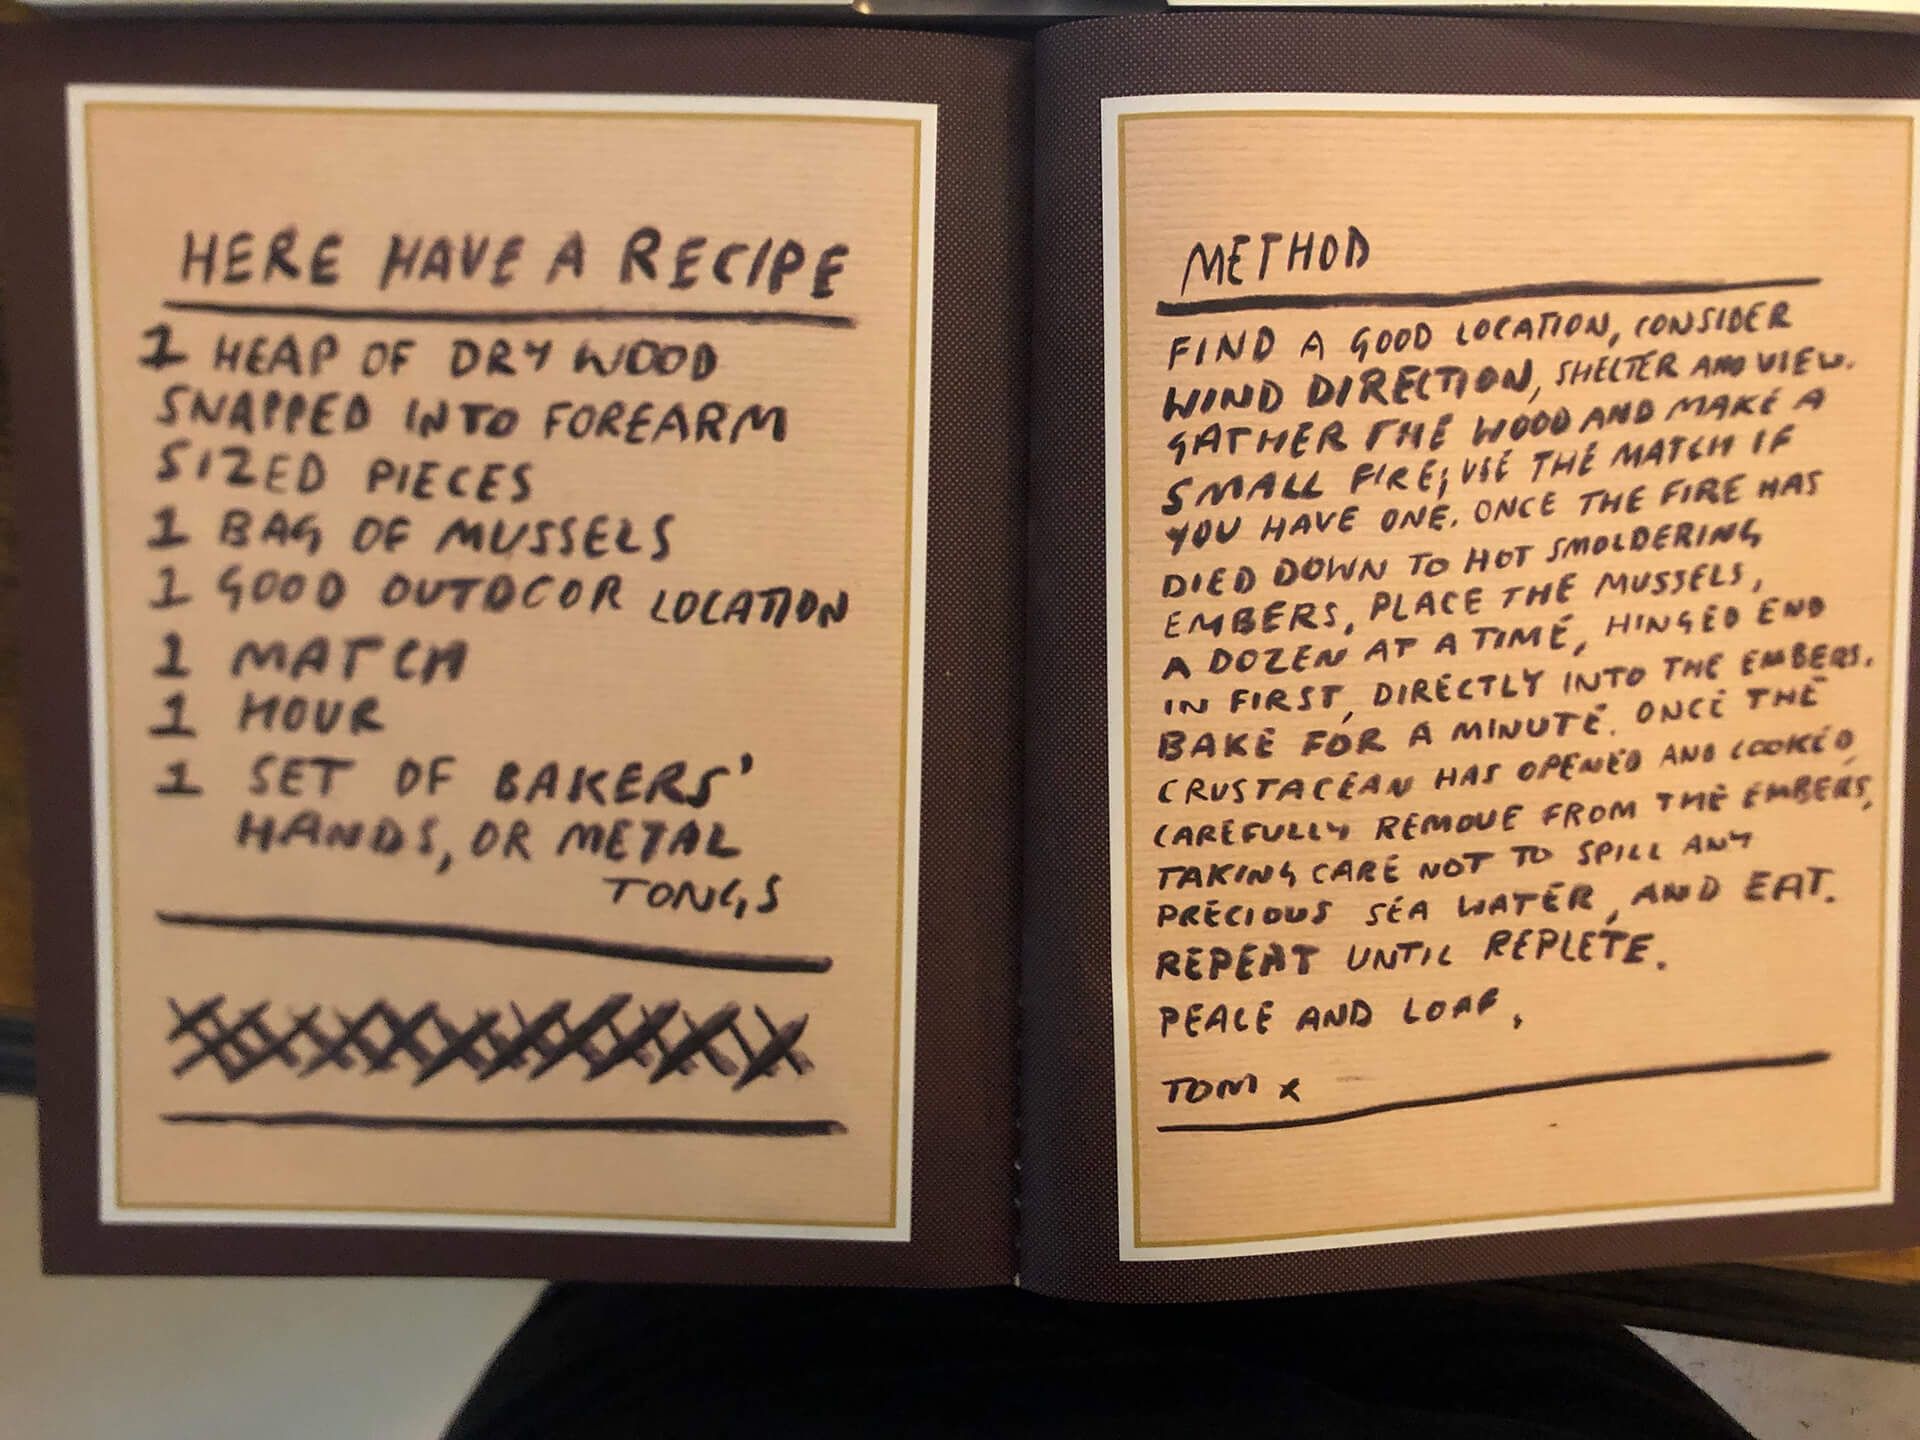 HERE HAVE A RECIPE
1 HEAP OF DRY WOOD
SNAPPED INTO FOREARM
SIZED PIECES
1 BAG OF MUSSELS
1 GOOD OUTDOOR LOCATION
1 MATCH
1 HOUR
1 SET OF BAKERS'
HANDS, OR METAL
TONGS
METHOD
FIND A GOOD LOCATION, CONSIDER
WIND DIRECTION, SHELTER AND VIEW.
GATHER THE WOOD AND MAKE A
SMALL FIRE; USE THE MATCH IF
YOU HAVE ONE. ONCE THE FIRE HAS
DIED DOWN TO HOT SMOLDERING
EMBERS, PLACE THE MUSSELS,
A DOZEN AT A TIME, HINGED END
IN FIRST, DIRECTLY INTO THE EMBERS.
BAKE FOR A MINUTE. ONCE THE
CRUSTACEAN HAS OPENED AND COOKED,
CAREFULLY REMOVE FROM THE EMBERS,
TAKING CARE NOT TO SPILL ANY
PRECIOUS SEA WATER, AND EAT.
REPEAT UNTIL REPLETE.
PEACE AND LOAF,
TOM X